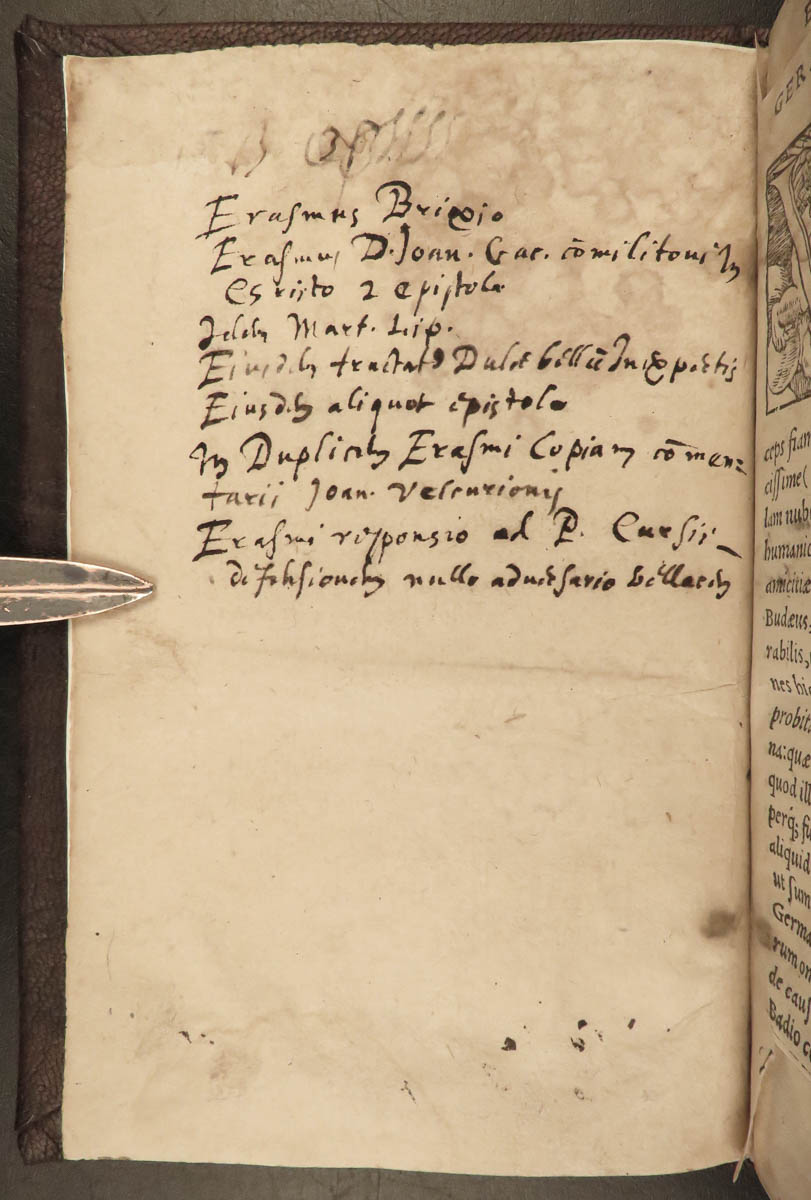 Erasmus Brixio
Erasmus D. Joan. Gac. cōmilitoni in
Christo 2 epistolæ
Idem Mart. Lip.
Eiusdem tractatꝰ Dulce bellū Inexpertis
Eiusdem aliquot epistolæ
In Duplicem Erasmi Copiam cōmen=
tarii Joan. Velcurionis
Erasmi responsio ad P. Cursii
defensionem nullo aduersario bellacem
GER
ceps fian
cissime (
lam nub
humanio
amicitiæ
Budæus,
rabilis,
nes hi
probit
na: quæ
quod ill
perq; fu
aliquid
ut sum
Germa
rum on
de caus
Badio c